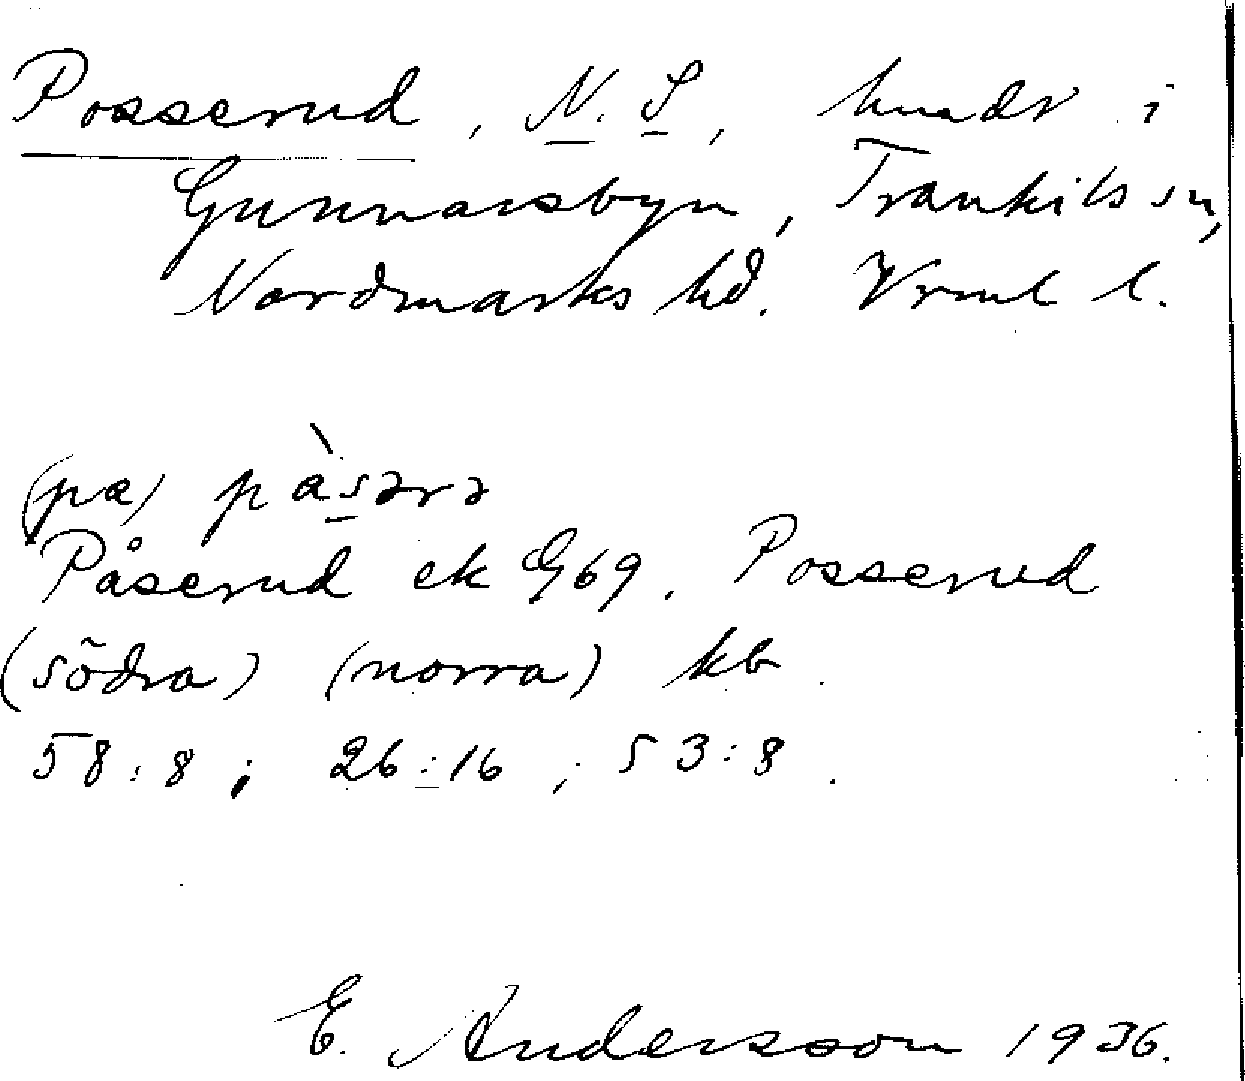 Posserud, N. S, hmdr i
Gunnarsbyn, Trankils sn,
Nordmarks hd. Vrml l.
(pæ) pàsərə
Påserud ek G69. Posserud
(södra) (norra) kb.
58:8; 26:16; 53:8.
E. Andersson 1936.